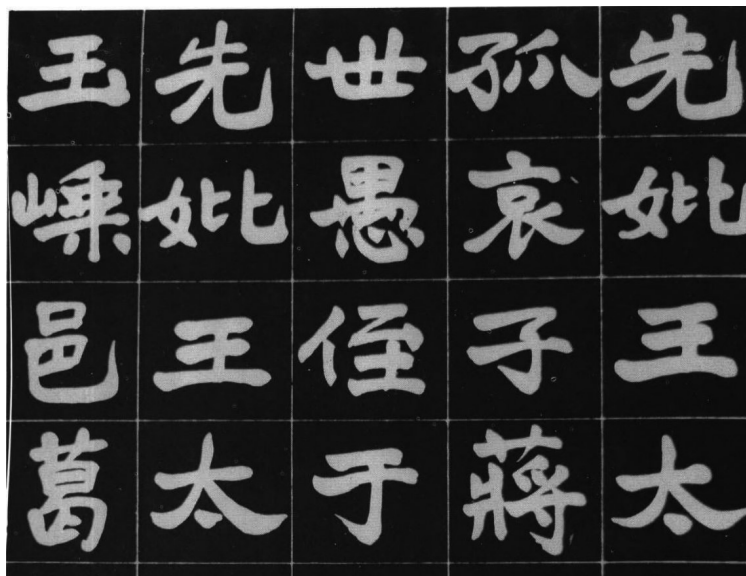 先妣王太
孤哀子蔣
世愚侄于
先妣王太
玉嵊邑葛